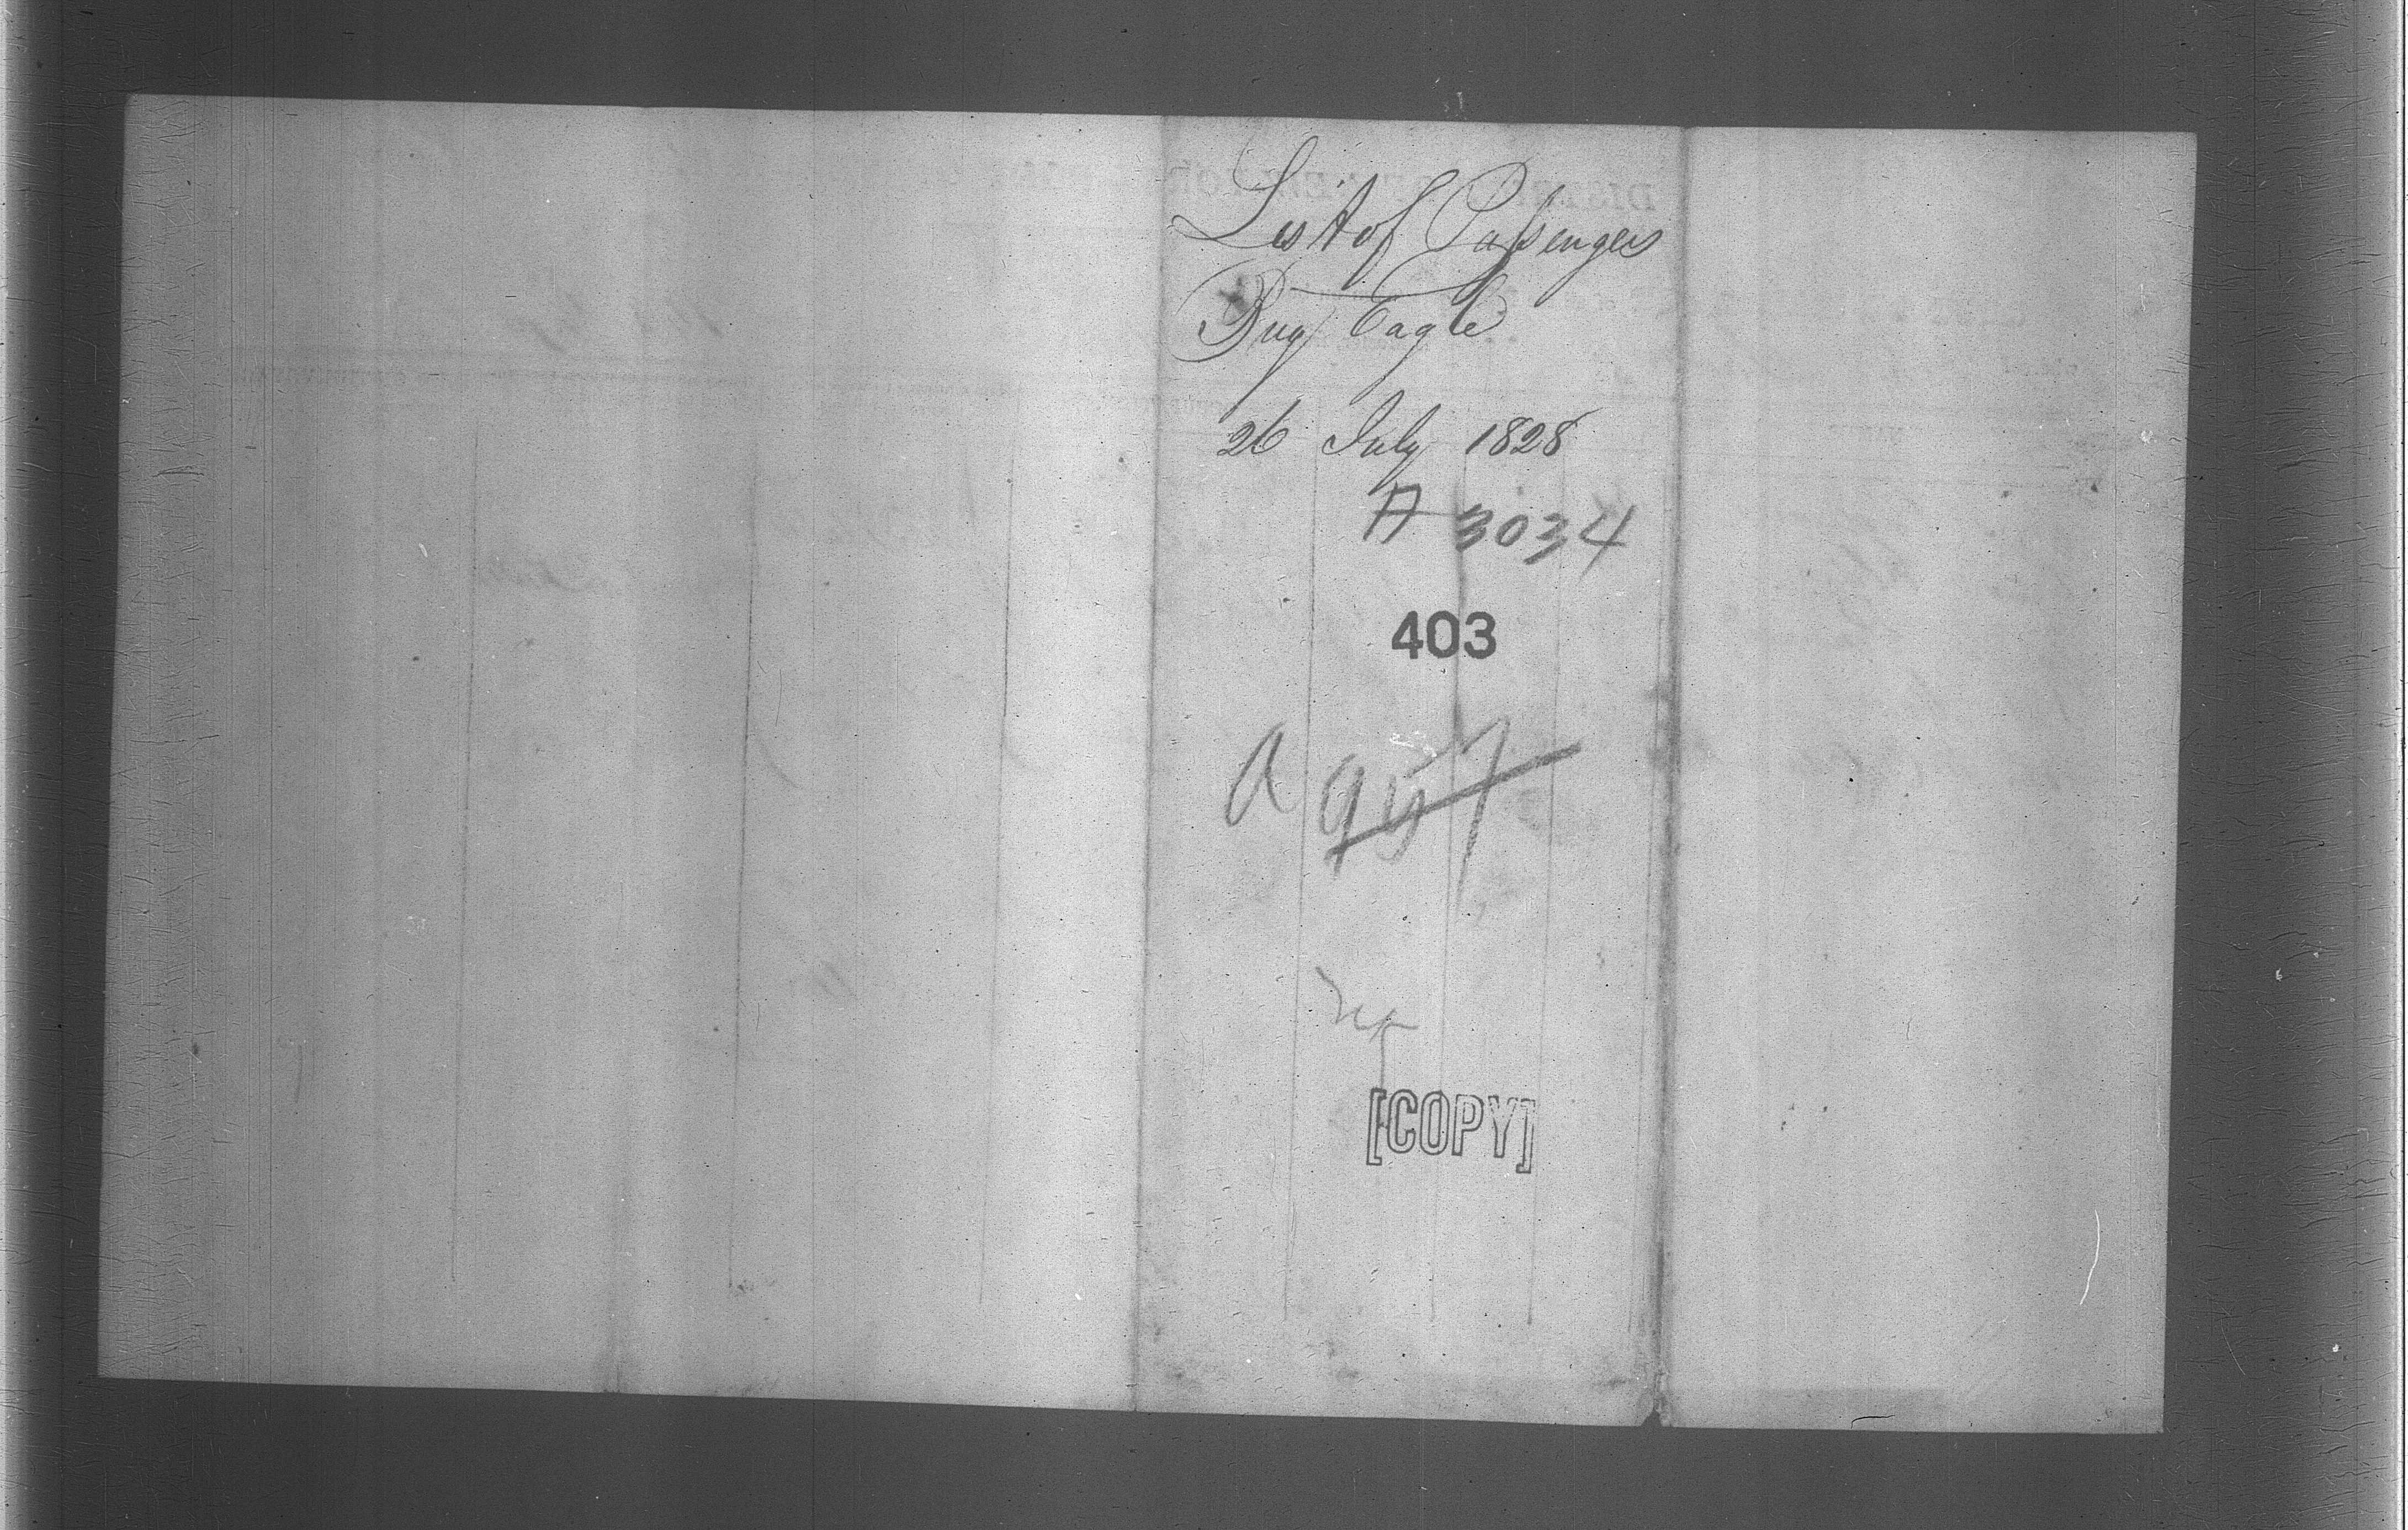 List of Passengers
Brig Eagle
26 July 1828
A 3034
403
a 957
[COPY]